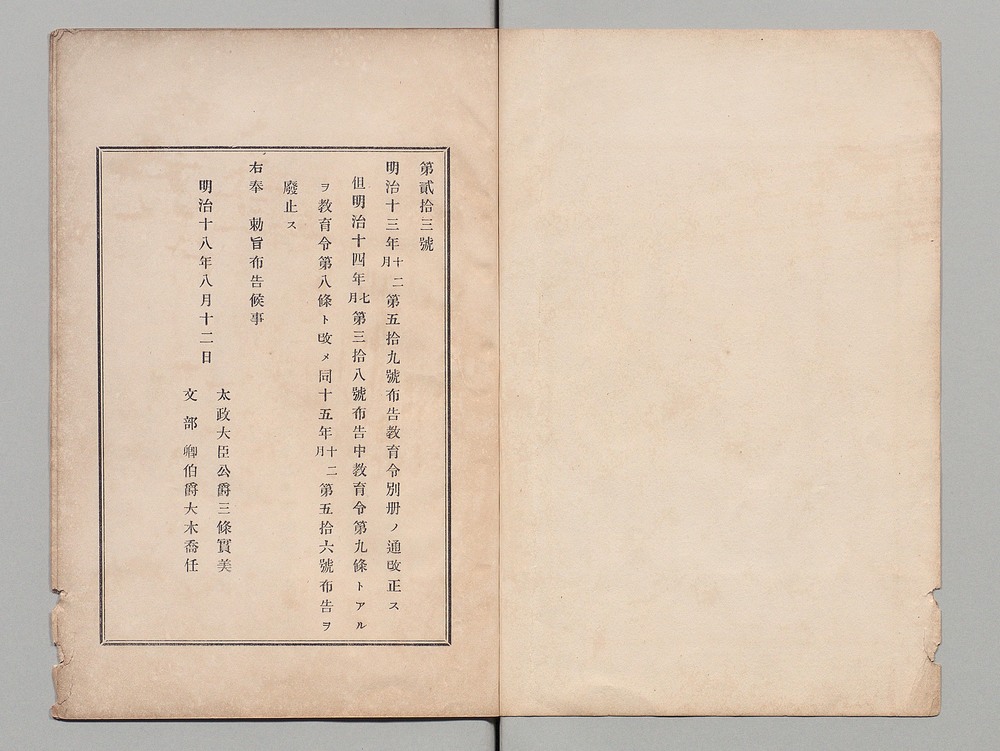 第貳拾三號
明治十三年十二月第五拾九號布告教育令別册ノ通改正ス
但明治十四年七月第三拾八號布告中教育令第九條トアル
ヲ教育令第八條ト改メ同十五年十二月第五拾六號布告ヲ
廢止ス
右奉　勅旨布告候事
明治十八年八月十二日
太政大臣公爵三條實美
文部卿伯爵大木喬任